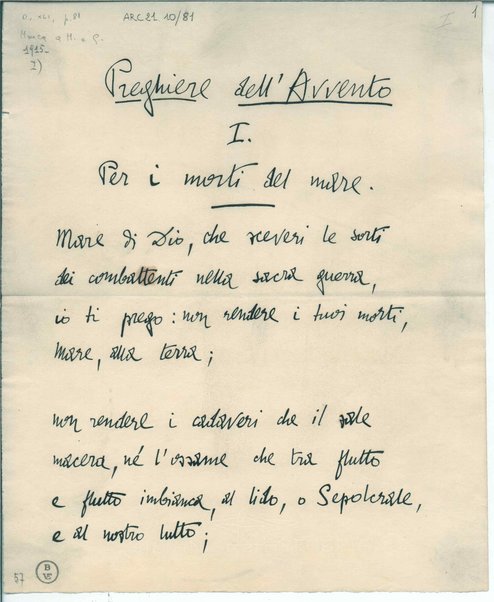 ARC21.10/81
I
1
1915-
I)
Preghiere dell'Avvento
I.
Per i morti del mare.
Mare di Dio, che sceveri le sorti
dei combattenti nella sacra guerra,
io ti prego: non rendere i tuoi morti,
Mare, alla terra;
non rendere i cadaveri che il sale
macera, né l'ossame che tra flutto
e flutto imbianca, al lido, o Sepolcrale,
e al nostro lutto;
57
B
VE